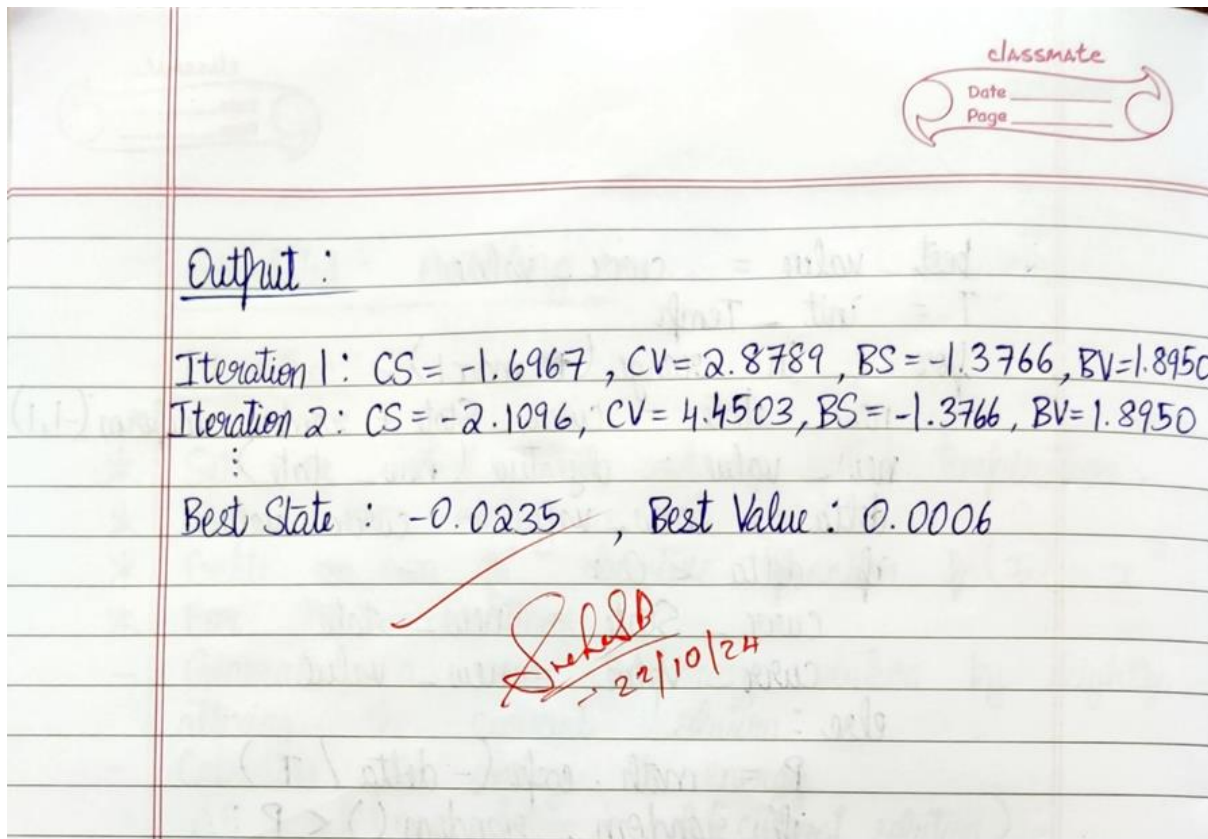 classmate
Date
Page
Output :
Iteration 1 : CS = -1.6967 , CV = 2.8789 , BS = -1.3766 , BV=1.8950
Iteration 2 : CS = -2.1096, CV = 4.4503, BS = -1.3766 , BV= 1.8950
⋮
Best State : -0.0235 , Best Value : 0.0006
22/10/24